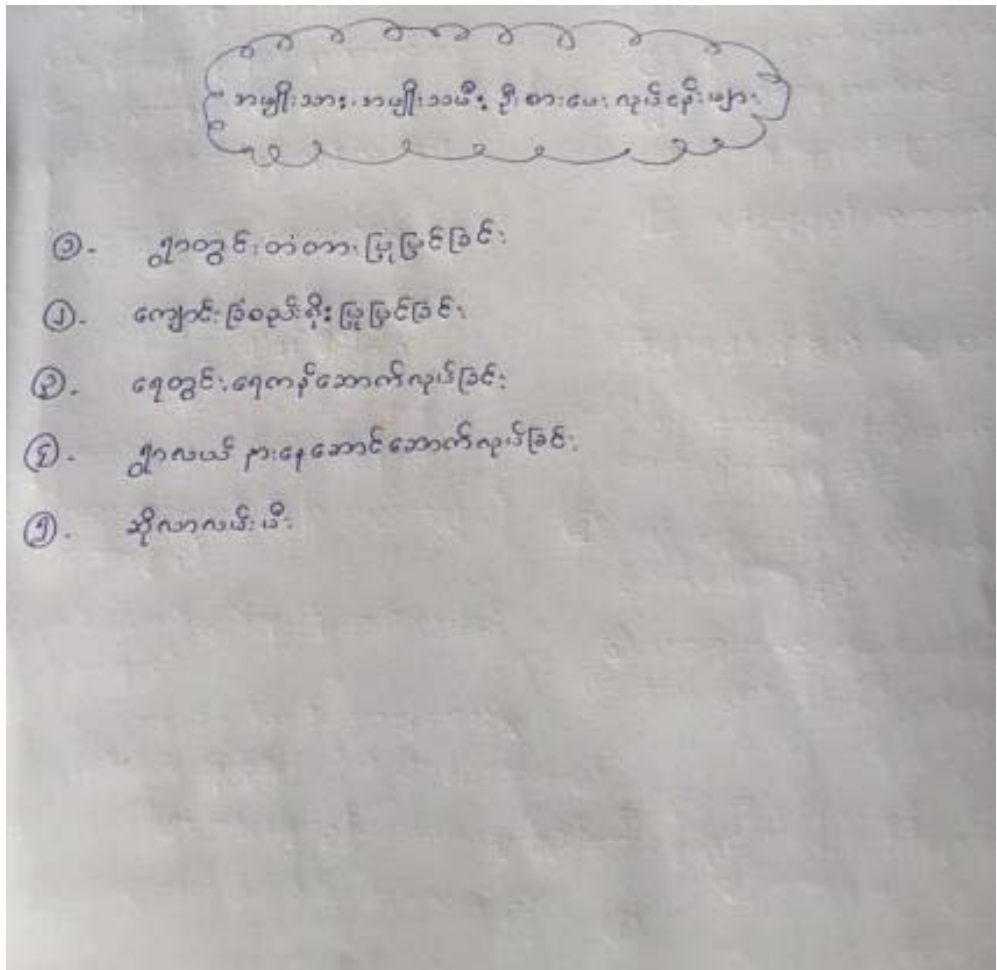 အမျိုးသား၊ အမျိုးသမီး ဦးစားပေး လုပ်ငန်းများ
၁- ရွာတွင်းတံတားပြုပြင်ခြင်း
၂- ကျောင်းခြံစည်းရိုးပြုပြင်ခြင်း
၃- ရေတွင်း၊ရေကန်ဆောက်လုပ်ခြင်း
၄- ရွာလယ် နားနေဆောင်ဆောက်လုပ်ခြင်း
၅- ဆိုလာလမ်းမီး